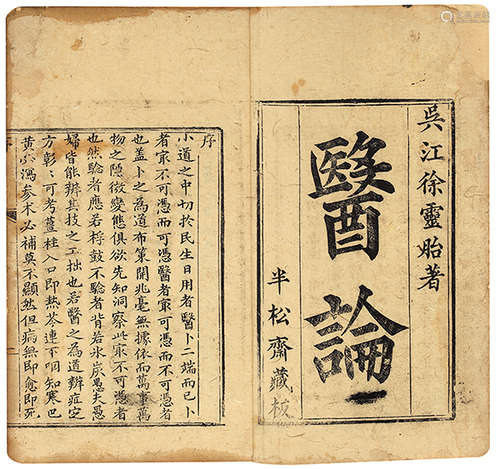 吳江徐靈胎著
醫論
半松齋藏板
序
小道之中切於民生日用者醫卜二端而已卜
者㝡不可憑而可憑醫者㝡可憑而不可憑者
也蓋卜之為道布策開兆毫無據依而萬事萬
物之隱微變態俱欲先知洞察此㝡不可憑者
也然驗者應若桴鼓不驗者背若氷炭愚夫愚
婦皆能辨其技之工拙也若醫之為道辨症定
方彰彰可考薑桂入口即熱芩連下咽知寒巴
黃必瀉參朮必補莫不顯然但病無即愈即死